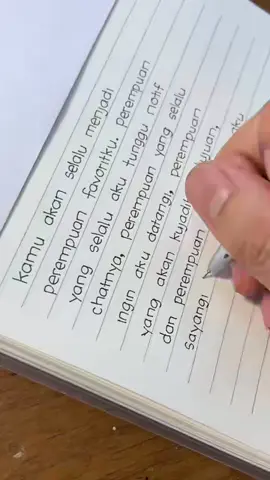 Kamu akan selalu menjadi
perempuan favoritku. perempuan
yang selalu aku tunggu notif
chatnya, perempuan yang selalu
ingin aku datangi, perempuan
yang akan kujadi
dan perempuan
sayangi